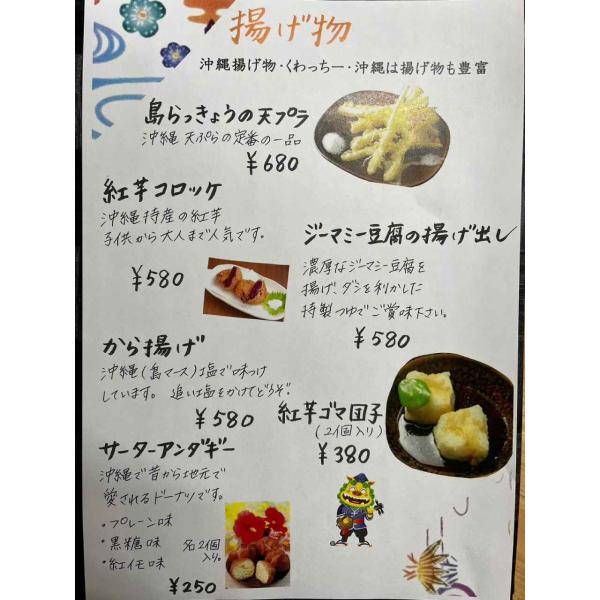 揚げ物
沖縄揚げ物・くわっちー・沖縄は揚げ物も豊富
島らっきょうの天プラ
沖縄 天ぷらの定番の一品
¥680
紅芋コロッケ
沖縄特産の紅芋
子供から大人まで人気です。
¥580
ジーマミー豆腐の揚げ出し
濃厚なジーマミー豆腐を
揚げ、ダシを利かした
特製つゆでご賞味下さい。
¥580
から揚げ
沖縄(島マース)塩で味つけ
しています。 追い塩をかけてどうぞ!
¥580
紅芋ゴマ団子
(2個入り)
¥380
サーターアンダギー
沖縄で昔から地元で
愛されるドーナツです。
・プレーン味
・黒糖味
・紅イモ味
各2個
入り。
¥250